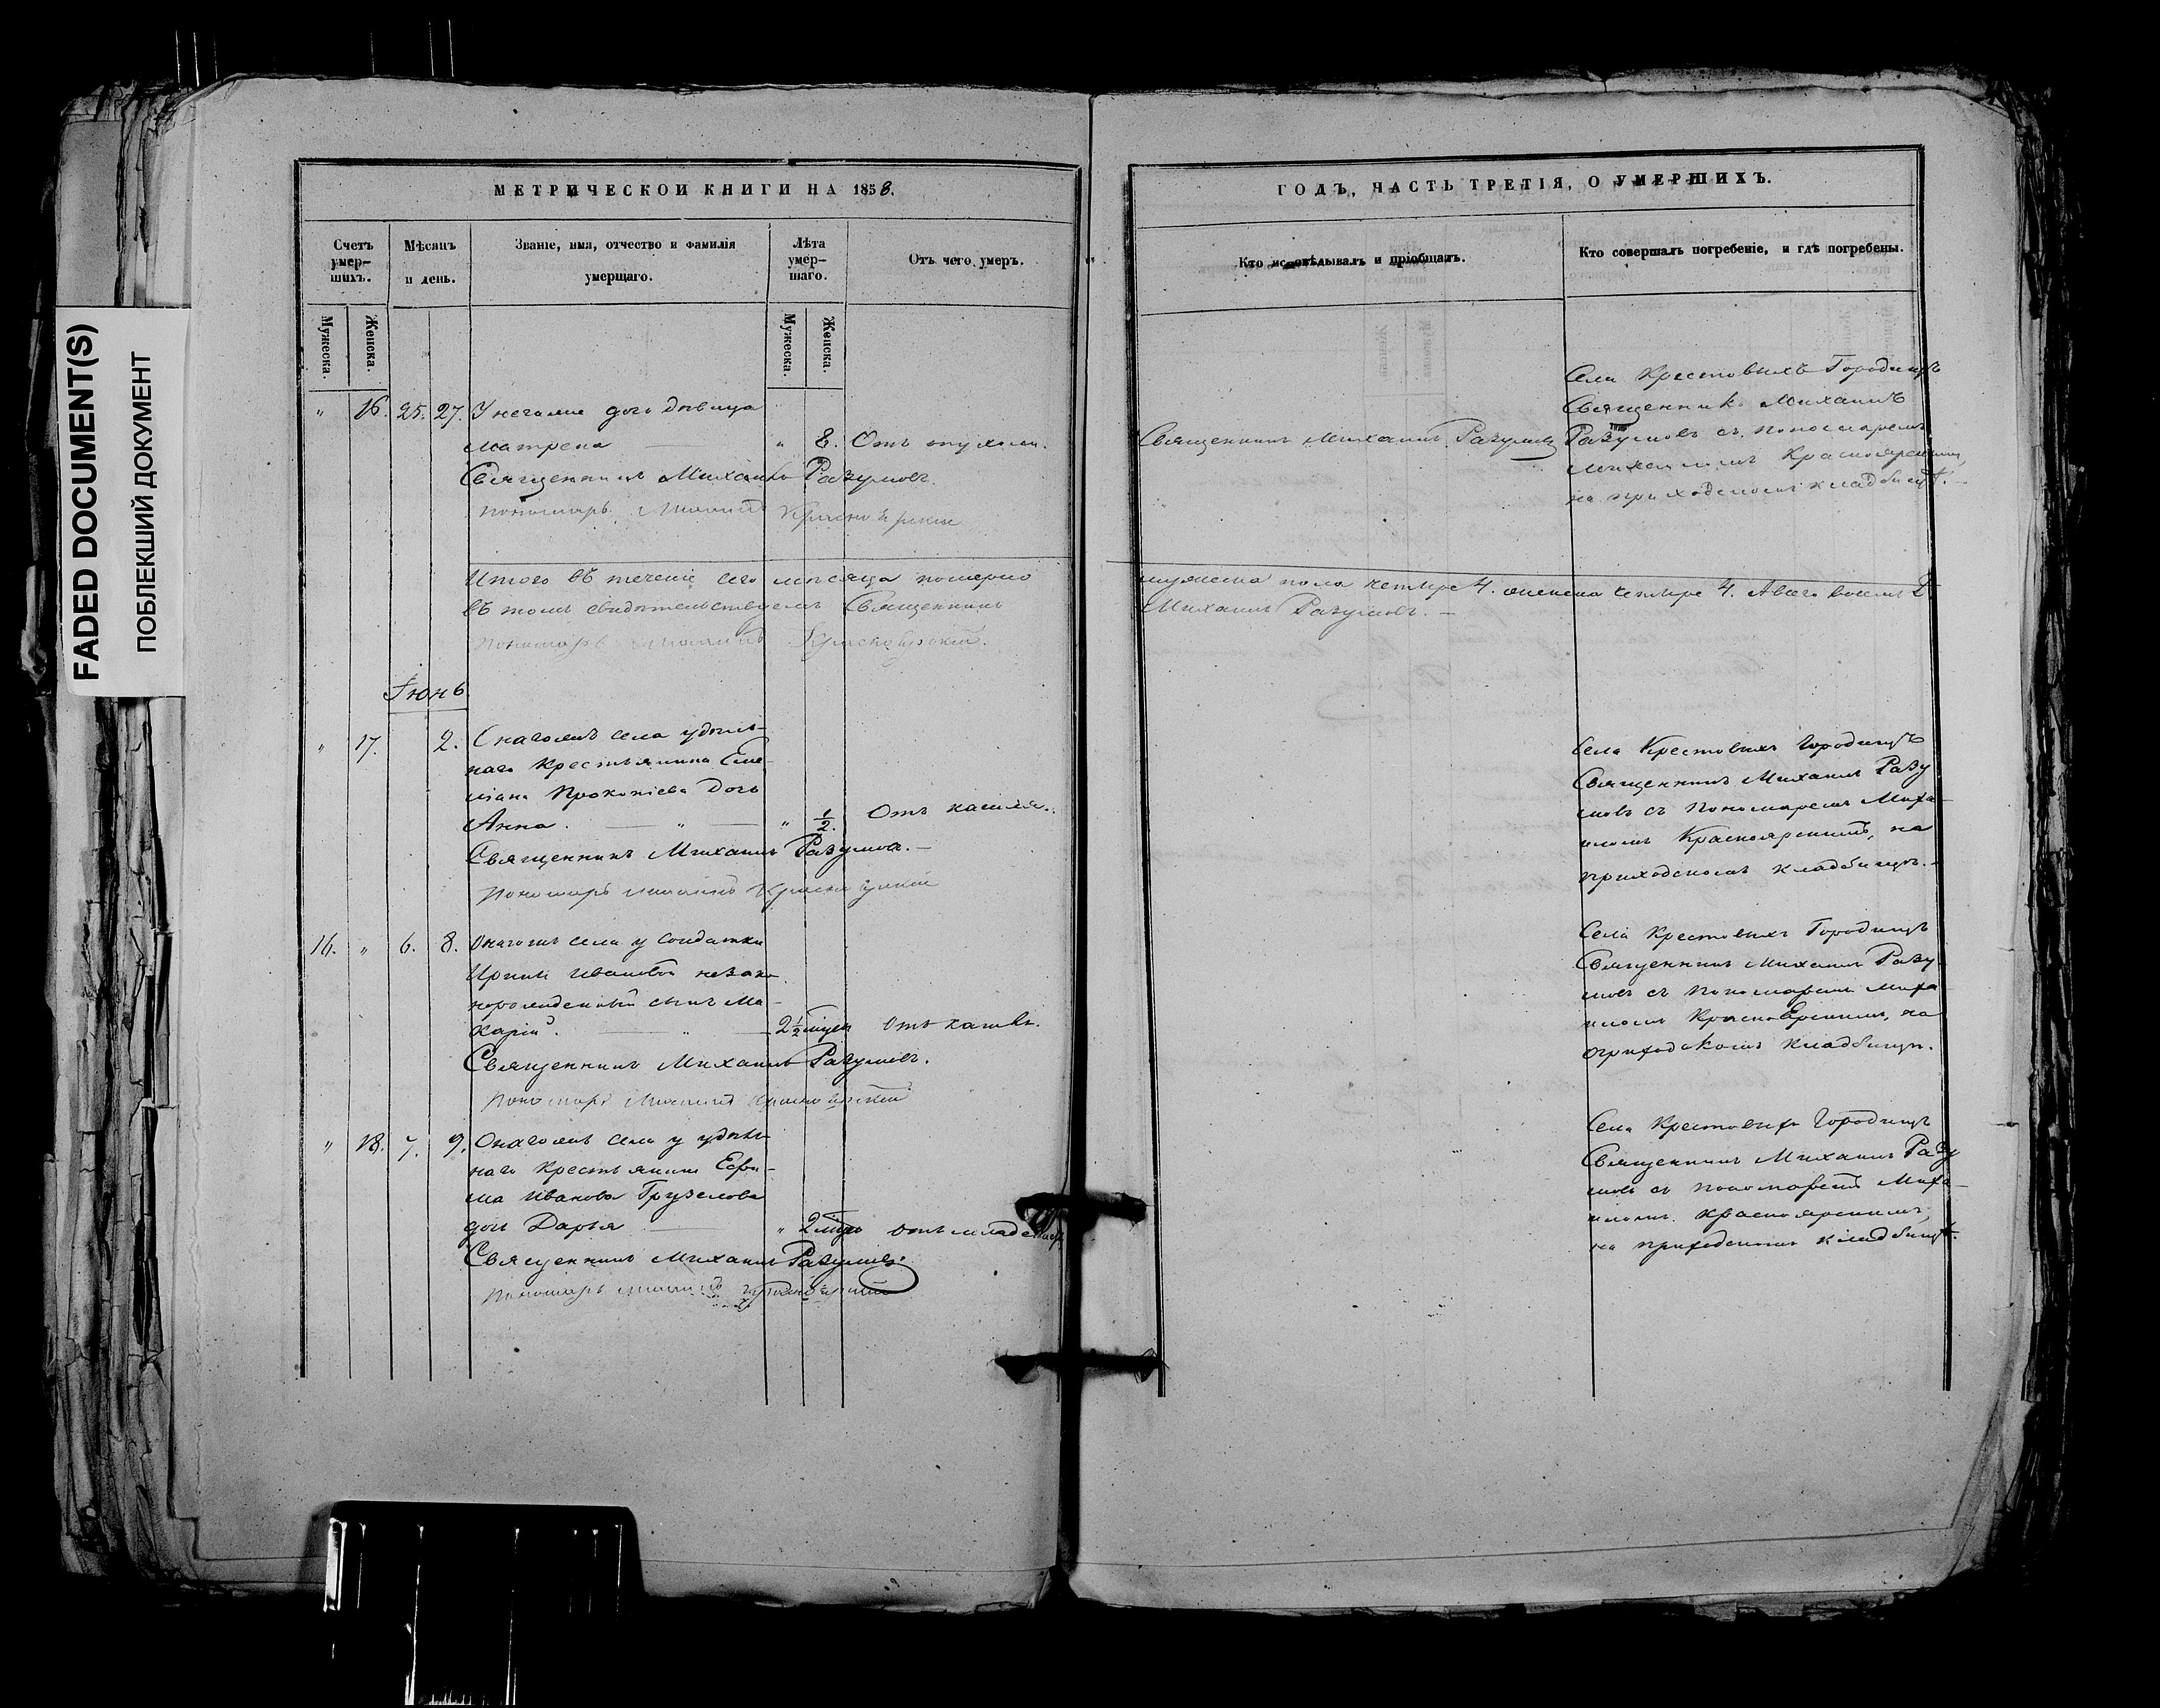 FADED DOCUMENT(S)
ПОБЛЕКШИЙ ДОКУМЕНТ
МЕТРИЧЕСКОЙ КНИГИ НА 1858.
Счетъ умер-шихъ.
Мѣсяцъ и день.
Званіе, имя, отчество и фамилія умершаго.
Лѣта умер-шаго.
Отъ чего умеръ.
Мужеска.
Женска.
Мужеска.
Женска.
" 16. 25. 27. У негоже дочь дѣвица
Матрена " 8. Отъ опухоли.
Священникъ Михаилъ Разумовъ.
Пономарь Михаилъ Красноярскій
Итого въ теченіе сего мѣсяца померло
въ томъ свидѣтельствуемъ Священникъ
Пономарь Михаилъ Красноярскій.
Іюнь
" 17. 2. Онагожъ села удѣль-
наго крестьянина Еме-
ліана Прокопіева дочь
Анна. " " 1/2. Отъ кашля.
Священникъ Михаилъ Разумовъ.
Пономарь Михаилъ Красноярскій
16. " 6. 8. Онагожъ села у солдатки
Ирины Ивановой незако-
норожденный сынъ Ма-
карій. " 2 1/2 Отъ кашля.
Священникъ Михаилъ Разумовъ.
Пономарь Михаилъ Красноярскій
" 18. 7. 9. Онагожъ села у удѣль-
наго крестьянина Ефи-
ма Иванова Грузелова
дочь Дарья " 2 отъ
Священникъ Михаилъ Разумовъ
Пономарь Михаилъ Красноярскій
ГОДЪ, ЧАСТЬ ТРЕТІЯ, О УМЕРШИХЪ.
Кто исповѣдывалъ и пріобщалъ.
Кто совершалъ погребеніе, и гдѣ погребены.
Священникъ Михаилъ Разумовъ
Села Крестовыхъ Городищъ
Священникъ Михаилъ
Разумовъ съ Пономаремъ
Михаиломъ Красноярскимъ,
на приходскомъ кладбищѣ.
мужеска пола четыре 4. женска четыре 4. А всего восемь 8
Михаилъ Разумовъ.
Села Крестовыхъ Городищъ
Священникъ Михаилъ Разу
мовъ съ Пономаремъ Миха-
иломъ Красноярскимъ, на
приходскомъ кладбищѣ.
Села Крестовыхъ Городищъ
Священникъ Михаилъ Разу-
мовъ съ Пономаремъ Миха
иломъ Красноярскимъ, на
приходскомъ кладбищѣ.
Села Крестовыхъ Городищъ
Священникъ Михаилъ Разу
мовъ съ Пономаремъ Миха-
иломъ Красноярскимъ,
на приходскомъ кладбищѣ.